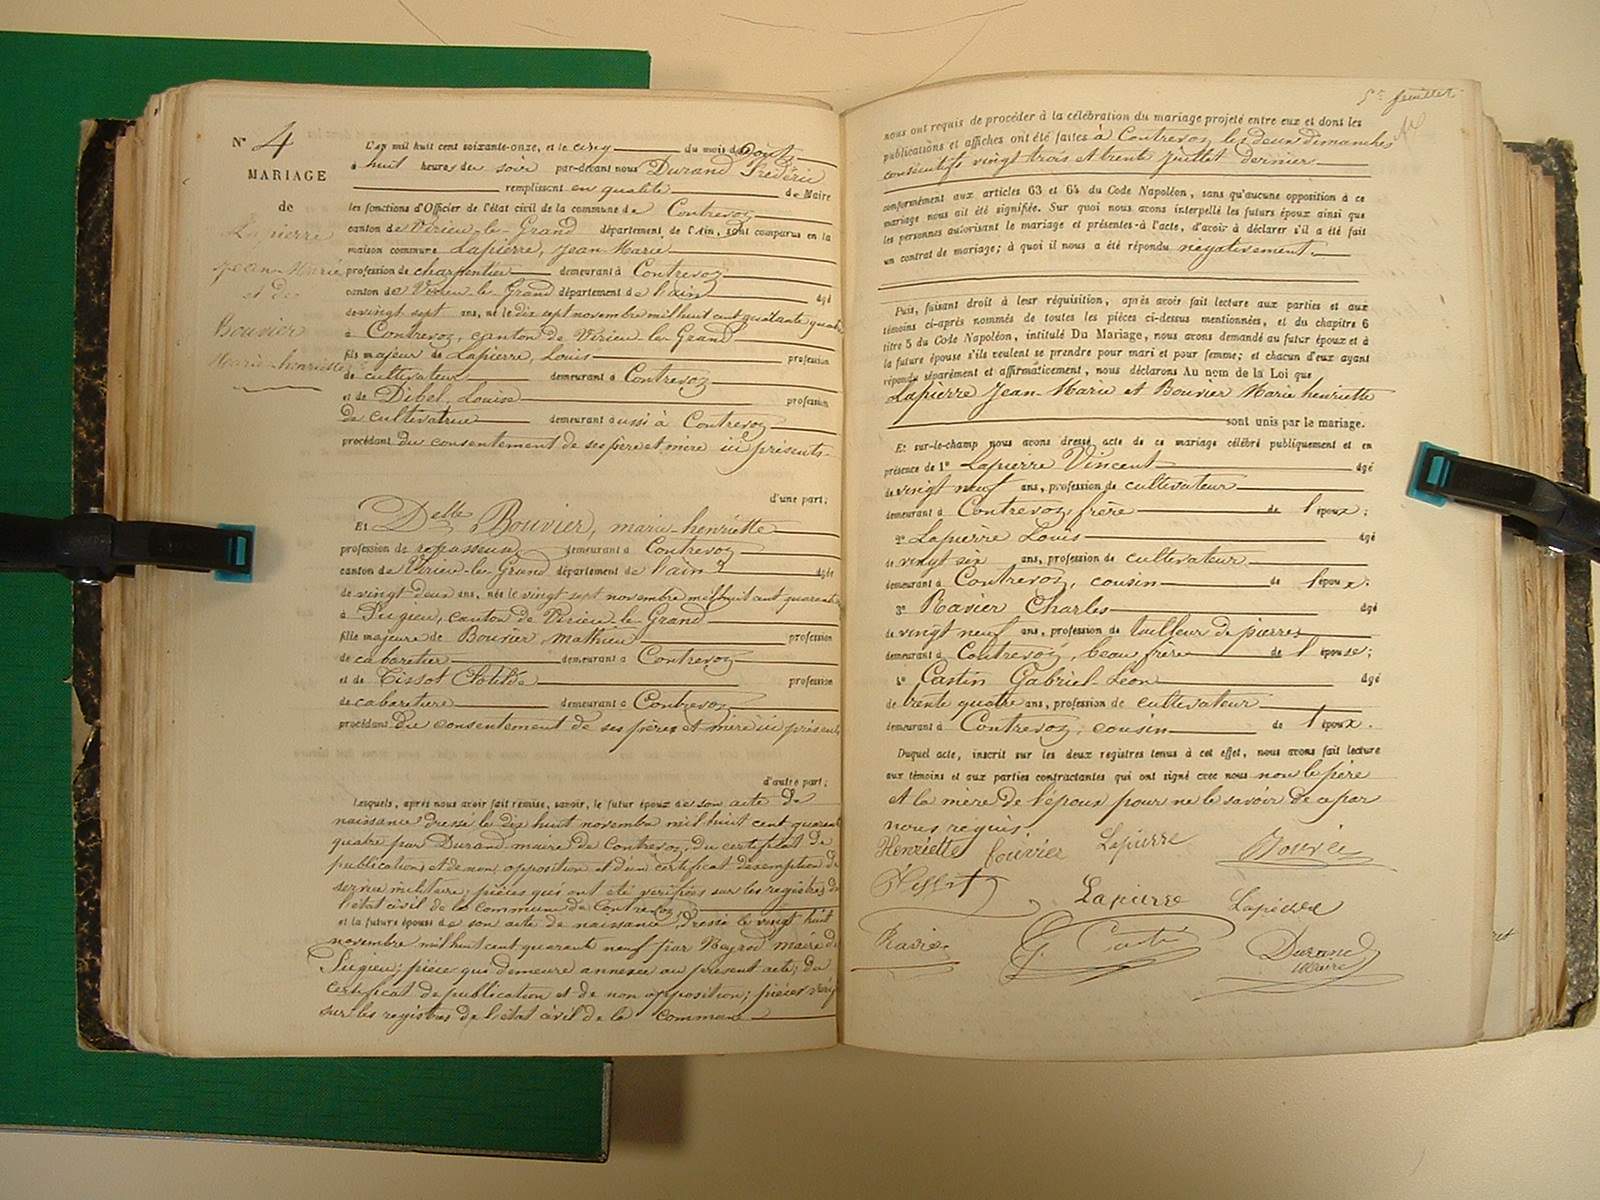 N° 4
MARIAGE
de
Lapierre
Jean-Marie
et de
Bouvier
Marie-henriette
L'an mil huit cent soixante-onze, et le cinq du mois d'août
à huit heures du soir par-devant nous Durand Frédéric
remplissant en qualité de Maire
les fonctions d'Officier de l'état civil de la commune de Contrevoz
canton de Virieu-le-Grand département de l'Ain, sont comparus en la
maison commune Lapierre, Jean-Marie
profession de charpentier demeurant à Contrevoz
canton de Virieu-le-Grand département de l'ain âgé
de vingt sept ans, né le dix sept novembre mil huit cent quarante quatre
à Contrevoz, canton de Virieu-le-Grand
fils majeur de Lapierre, Louis profession
de cultivateur demeurant à Contrevoz
et de Dibel, Louise profession
de cultivatrice demeurant aussi à Contrevoz
procédant du consentement de ses père et mère ici présents
d'une part;
Et Delle Bouvier, marie-henriette
profession de repasseuse demeurant à Contrevoz
canton de Virieu-le-Grand département de l'ain âgée
de vingt-deux ans, née le vingt sept novembre mil huit cent quarante
à Pugieu, canton de Virieu-le-Grand
fille majeure de Bouvier, mathieu profession
de cabaretier demeurant à Contrevoz
et de Tissot Clotilde profession
de cabaretière demeurant à Contrevoz
procédant du consentement de ses pères et mère ici présents
d'autre part;
Lesquels, après nous avoir fait remise, savoir, le futur époux de son acte de
naissance dressé le dix huit novembre mil huit cent quarante
quatre par Durand, maire de Contrevoz, du certificat de
publication et de non opposition et d'un certificat d'exemption du
service militaire; pièces qui ont été vérifiées sur les registres de
l'état civil de la commune de Contrevoz
et la future épouse de son acte de naissance, dressé le vingt huit
novembre mil huit cent quarante neuf par Neyrod maire de
Pugieu; pièce qui demeure annexée au présent acte; du
certificat de publication et de non opposition; pièces
sur les registres de l'état civil de la commune
5e feuillet
nous ont requis de procéder à la célébration du mariage projeté entre eux et dont les
publications et affiches ont été faites à Contrevoz les deux dimanches
consécutifs vingt trois et trente juillet dernier
conformément aux articles 63 et 64 du Code Napoléon, sans qu'aucune opposition à ce
mariage nous ait été signifiée. Sur quoi nous avons interpellé les futurs époux ainsi que
les personnes autorisant le mariage et présentes à l'acte, d'avoir à déclarer s'il a été fait
un contrat de mariage; à quoi il nous a été répondu négativement.
Puis, faisant droit à leur réquisition, après avoir fait lecture aux parties et aux
témoins ci-après nommés de toutes les pièces ci-dessus mentionnées, et du chapitre 6
titre 5 du Code Napoléon, intitulé Du Mariage, nous avons demandé au futur époux et à
la future épouse s'ils veulent se prendre pour mari et pour femme; et chacun d'eux ayant
répondu séparément et affirmativement, nous déclarons Au nom de la Loi que
Lapierre Jean-Marie et Bouvier Marie henriette
sont unis par le mariage.
Et sur-le-champ nous avons dressé acte de ce mariage célébré publiquement et en
présence de 1° Lapierre Vincent âgé
de vingt neuf ans, profession de cultivateur
demeurant à Contrevoz, frère de l'époux;
2° Lapierre Louis âgé
de vingt six ans, profession de cultivateur
demeurant à Contrevoz, cousin de l'époux;
3° Ravier Charles âgé
de vingt neuf ans, profession de tailleur de pierres
demeurant à Contrevoz, beau frère de l'épouse;
4° Castin Gabriel Léon âgé
de trente quatre ans, profession de cultivateur
demeurant à Contrevoz, cousin de l'époux.
Duquel acte, inscrit sur les deux registres tenus à cet effet, nous avons fait lecture
aux témoins et aux parties contractantes qui ont signé avec nous non le père
et la mère de l'époux pour ne le savoir de ce par
nous requis
Henriette bouvier Lapierre Bouvier
Tissot Lapierre Lapierre
Ravier G. Castin Durand
Maire